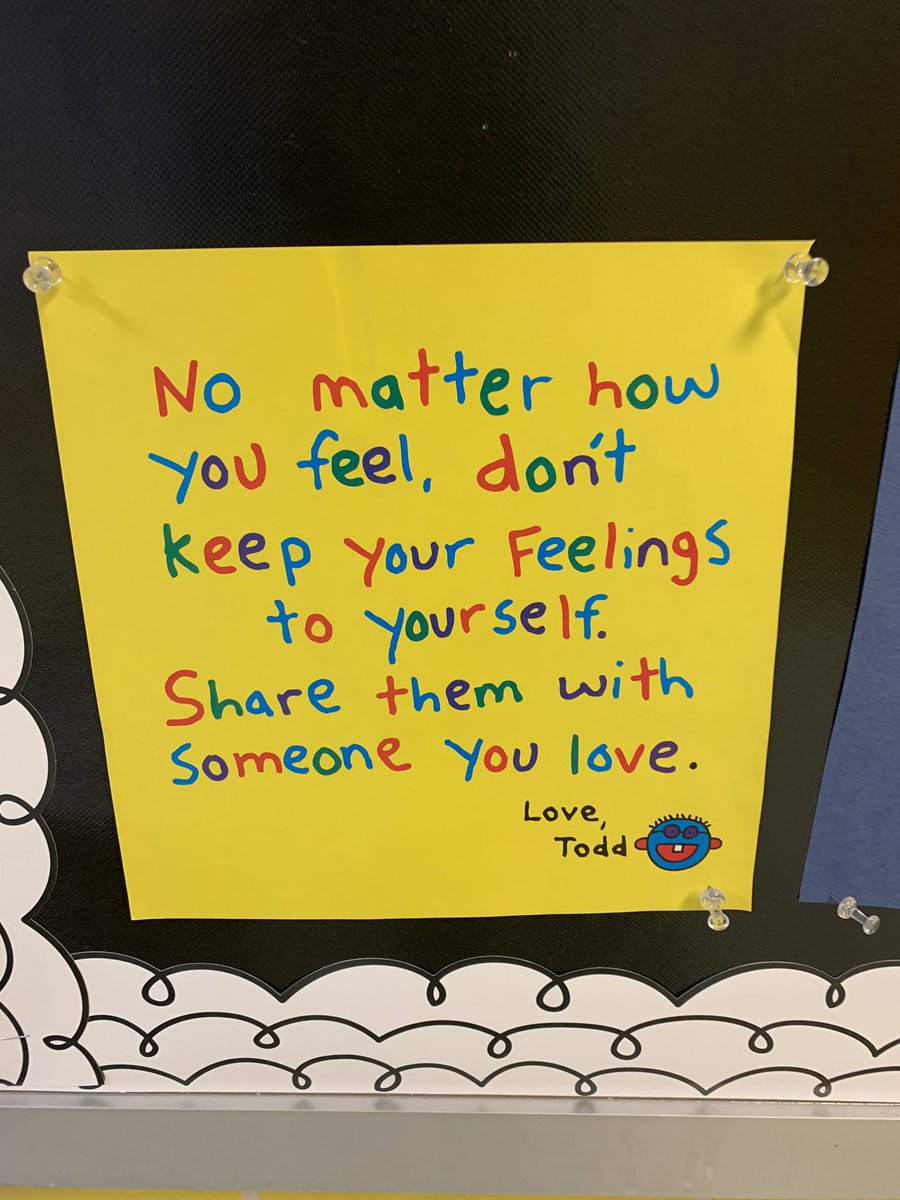 No matter how
you feel, don't
keep your Feelings
to yourself.
Share them with
someone you love.
Love,
Todd